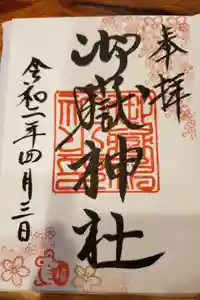 奉拝
御嶽神社
令和二年四月三日